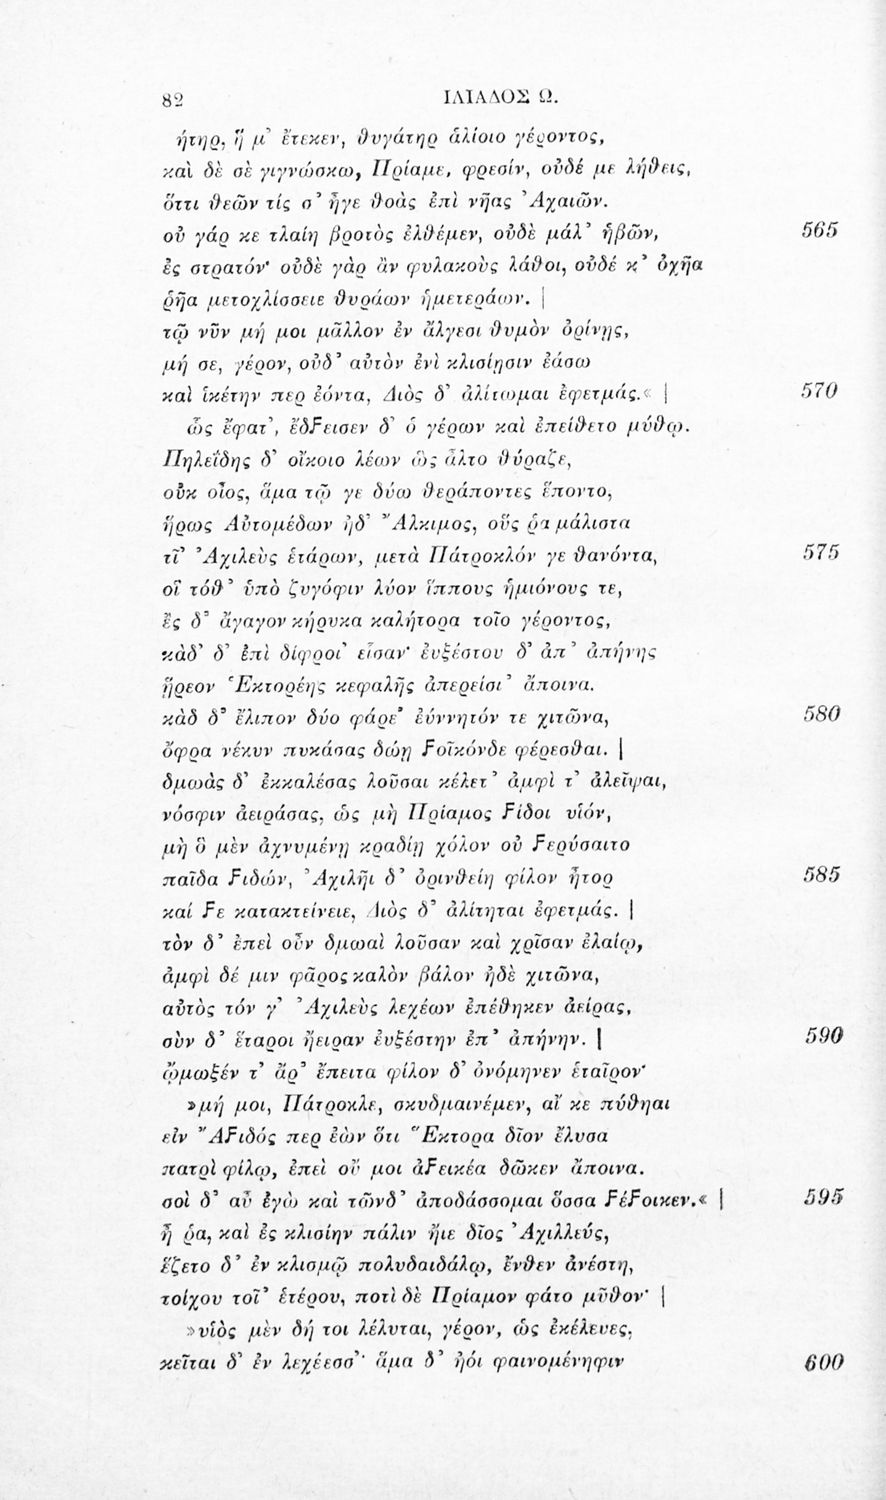 82 ΙΛΙΑΔΟΣ Ω.
ήτηρ, ἥ μ' ἔτεκεν, θυγάτηρ ἁλίοιο γέροντος,
καὶ δὲ σὲ γιγνώσκω, Πρίαμε, φρεσίν, οὐδέ με λήθεις,
ὅττι θεῶν τίς σ' ἦγε θοὰς ἐπὶ νῆας Ἀχαιῶν.
οὐ γάρ κε τλαίη βροτὸς ἐλθέμεν, οὐδὲ μάλ' ἡβῶν, 565
ἐς στρατόν· οὐδὲ γὰρ ἂν φυλακοὺς λάθοι, οὐδέ κ' ὀχῆα
ῥῆα μετοχλίσσειε θυράων ἡμετεράων. |
τῷ νῦν μή μοι μᾶλλον ἐν ἄλγεσι θυμὸν ὀρίνῃς,
μή σε, γέρον, οὐδ' αὐτὸν ἐνὶ κλισίῃσιν ἐάσω
καὶ ἱκέτην περ ἐόντα, Διὸς δ' ἀλίτωμαι ἐφετμάς.« | 570
ὣς ἔφατ', ἔδϝεισεν δ' ὁ γέρων καὶ ἐπείθετο μύθῳ.
Πηλεΐδης δ' οἴκοιο λέων ὣς ἆλτο θύραζε,
οὐκ οἶος, ἅμα τῷ γε δύω θεράποντες ἕποντο,
ἥρως Αὐτομέδων ἠδ' Ἄλκιμος, οὕς ῥα μάλιστα
τῖ' Ἀχιλεὺς ἑτάρων, μετὰ Πάτροκλόν γε θανόντα, 575
οἳ τόθ' ὑπὸ ζυγόφιν λύον ἵππους ἡμιόνους τε,
ἐς δ' ἄγαγον κήρυκα καλήτορα τοῖο γέροντος,
κὰδ' δ' ἐπὶ δίφροι' εἷσαν· ἐυξέστου δ' ἀπ' ἀπήνης
ᾕρεον Ἑκτορέης κεφαλῆς ἀπερείσι' ἄποινα.
κὰδ δ' ἔλιπον δύο φάρε' ἐύννητόν τε χιτῶνα, 580
ὄφρα νέκυν πυκάσας δώῃ ϝοῖκόνδε φέρεσθαι. |
δμωὰς δ' ἐκκαλέσας λοῦσαι κέλετ' ἀμφὶ τ' ἀλεῖψαι,
νόσφιν ἀειράσας, ὡς μὴ Πρίαμος ϝίδοι υἱόν,
μὴ ὃ μὲν ἀχνυμένῃ κραδίῃ χόλον οὐ ϝερύσαιτο
παῖδα ϝιδών, Ἀχιλῆι δ' ὀρινθείη φίλον ἦτορ 585
καί ϝε κατακτείνειε, Διὸς δ' ἀλίτηται ἐφετμάς. |
τὸν δ' ἐπεὶ οὖν δμωαὶ λοῦσαν καὶ χρῖσαν ἐλαίῳ,
ἀμφὶ δέ μιν φᾶρος καλὸν βάλον ἠδὲ χιτῶνα,
αὐτὸς τόν γ' Ἀχιλεὺς λεχέων ἐπέθηκεν ἀείρας,
σὺν δ' ἕταροι ἤειραν ἐυξέστην ἐπ' ἀπήνην. | 590
ᾤμωξέν τ' ἄρ' ἔπειτα φίλον δ' ὀνόμηνεν ἑταῖρον·
»μή μοι, Πάτροκλε, σκυδμαινέμεν, αἴ κε πύθηαι
εἰν Ἄϝιδός περ ἐὼν ὅτι Ἕκτορα δῖον ἔλυσα
πατρὶ φίλῳ, ἐπεὶ οὔ μοι ἀϝεικέα δῶκεν ἄποινα.
σοὶ δ' αὖ ἐγὼ καὶ τῶνδ' ἀποδάσσομαι ὅσσα ϝέϝοικεν.« | 595
ἦ ῥα, καὶ ἐς κλισίην πάλιν ἤιε δῖος Ἀχιλλεύς,
ἕζετο δ' ἐν κλισμῷ πολυδαιδάλῳ, ἔνθεν ἀνέστη,
τοίχου τοῖ' ἑτέρου, ποτὶ δὲ Πρίαμον φάτο μῦθον· |
»υἱὸς μὲν δή τοι λέλυται, γέρον, ὡς ἐκέλευες,
κεῖται δ' ἐν λεχέεσσ'· ἅμα δ' ἠόι φαινομένηφιν 600